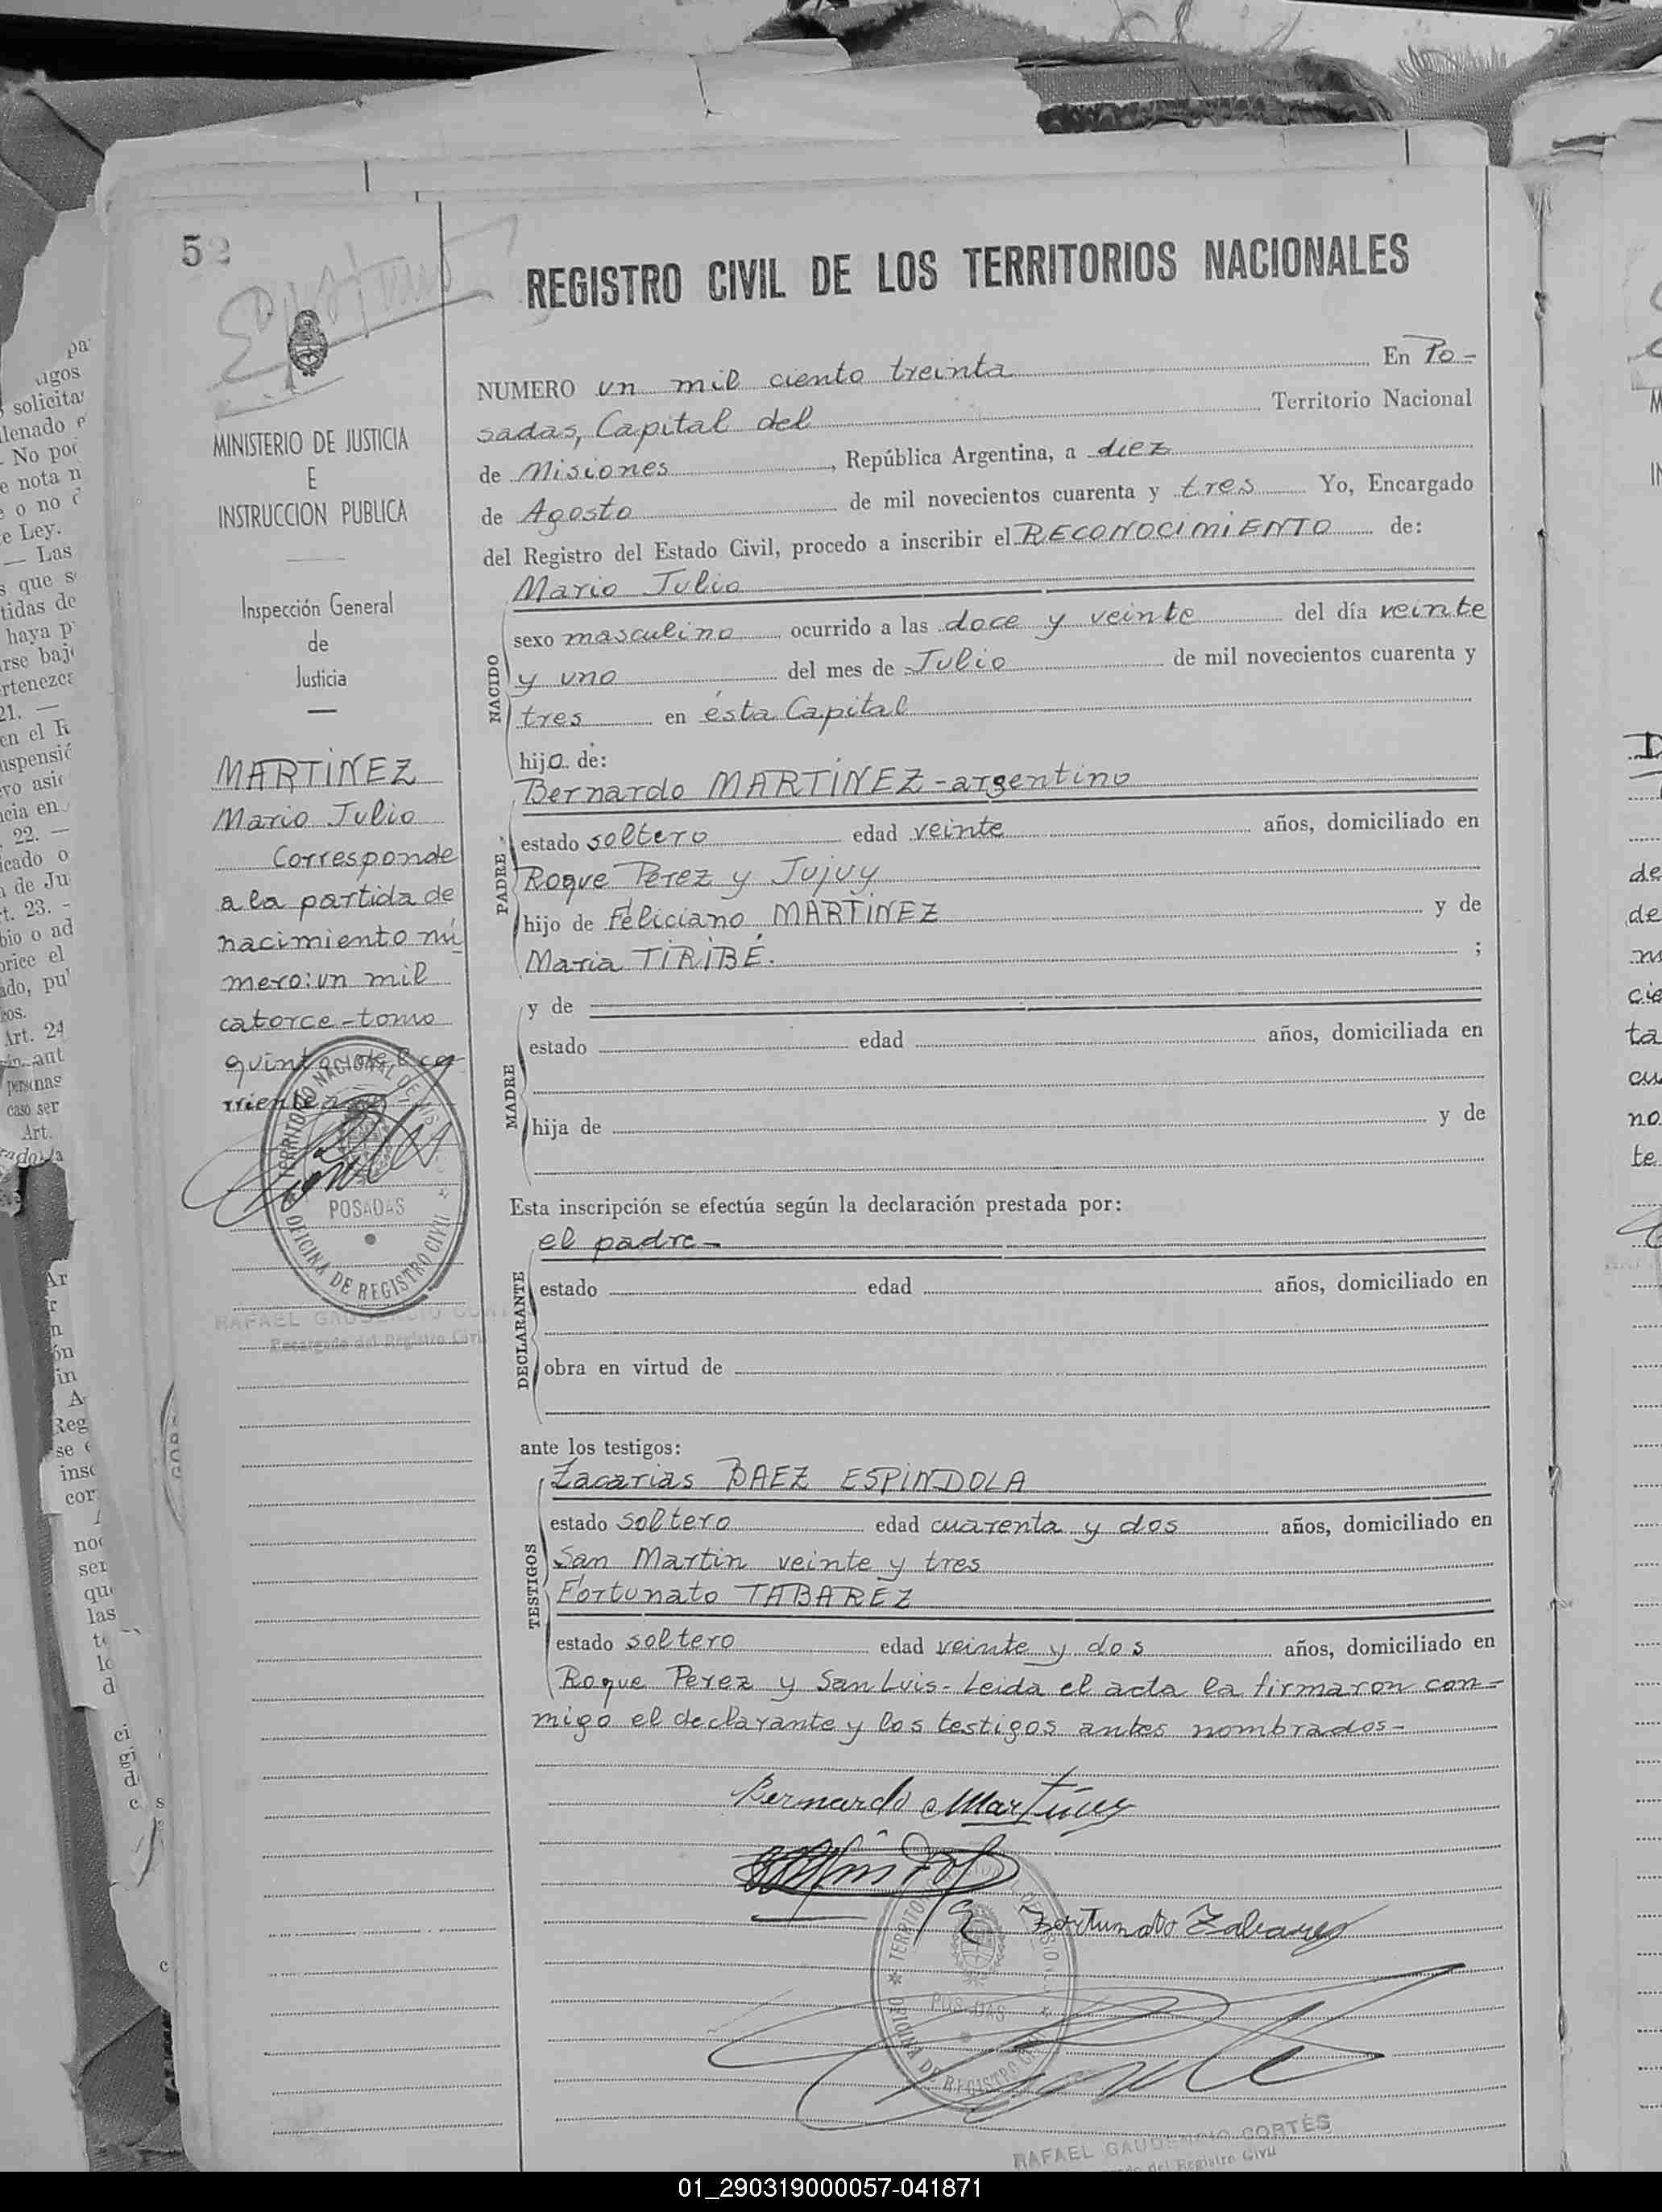 52
REGISTRO CIVIL DE LOS TERRITORIOS NACIONALES
MINISTERIO DE JUSTICIA
E
INSTRUCCION PUBLICA
Inspección General
de
Justicia
MARTÍNEZ
Mario Julio
Corresponde
a la partida de
nacimiento nú
mero: un mil
catorce - tomo
TERRITORIO NACIONAL DE
POSADAS
OFICINA DE REGISTRO CIVIL
RAFAEL GAUDENCIO
Encargado del Registro Civil
NUMERO un mil ciento treinta En Po-
sadas, Capital del Territorio Nacional
de Misiones, República Argentina, a diez
de Agosto de mil novecientos cuarenta y tres Yo, Encargado
del Registro del Estado Civil, procedo a inscribir el RECONOCIMIENTO de:
Mario Julio
NACIDO
sexo masculino ocurrido a las doce y veinte del día veinte
y uno del mes de Julio de mil novecientos cuarenta y
tres en ésta Capital
hijo de:
Bernardo MARTÍNEZ - argentino
PADRE
estado soltero edad veinte años, domiciliado en
Roque Perez y Jujuy
hijo de Feliciano MARTÍNEZ y de
Maria TIRIBÉ. ;
MADRE
y de
estado edad años, domiciliada en
hija de y de
Esta inscripción se efectúa según la declaración prestada por:
el padre -
DECLARANTE
estado edad años, domiciliado en
obra en virtud de
ante los testigos:
Zacarias BAEZ ESPINDOLA
TESTIGOS
estado soltero edad cuarenta y dos años, domiciliado en
San Martin veinte y tres
Fortunato TABAREZ
estado soltero edad veinte y dos años, domiciliado en
Roque Perez y San Luis - Leida el acta la firmaron con=
migo el declarante y los testigos antes nombrados -
Bernardo Martínez
Fortunato Tabarez
POSADAS
OFICINA DE REGISTRO
RAFAEL GAUDENCIO CORTÉS
del Registro Civil
01_290319000057-041871